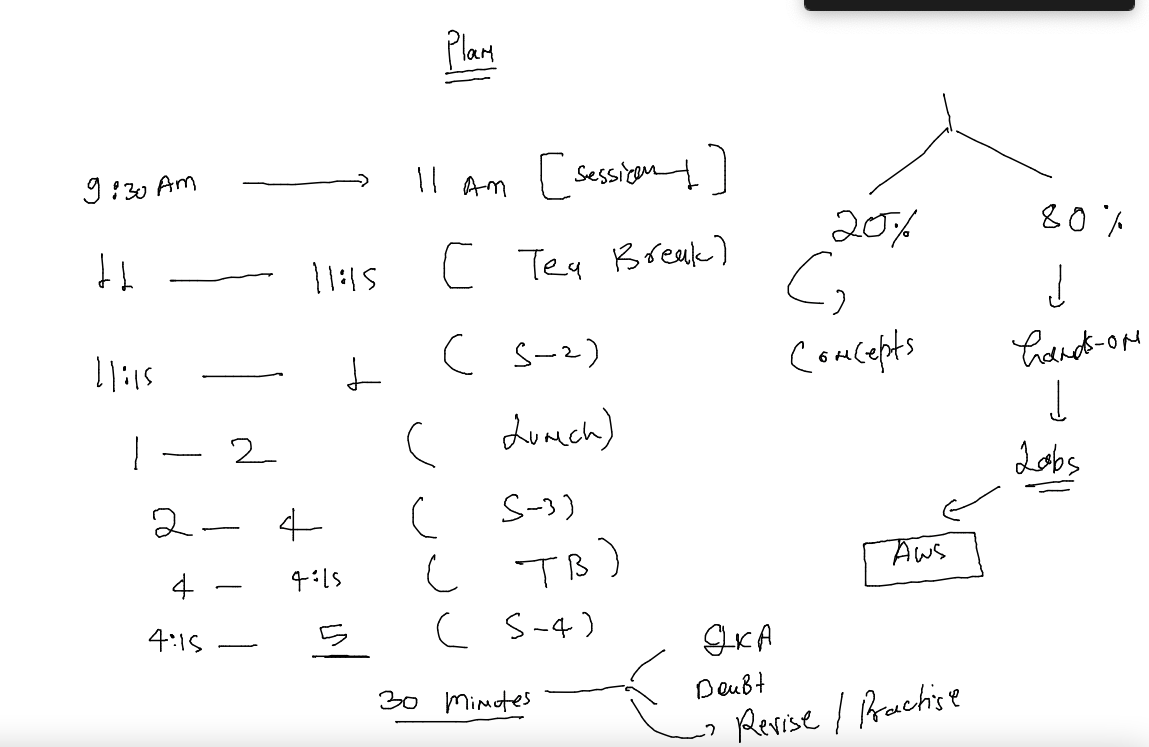 Plan
9:30 AM 11 AM [Session 1]
11 — 11:15 [ Tea Break)
11:15 — 1 ( S-2)
1 — 2 ( Lunch)
2 — 4 ( S-3)
4 — 4:15 ( TB )
4:15 — 5 ( S-4)
30 Minutes
Doubt
Revise / Practise
20% 80%
Concepts hands-on
Labs
AWS